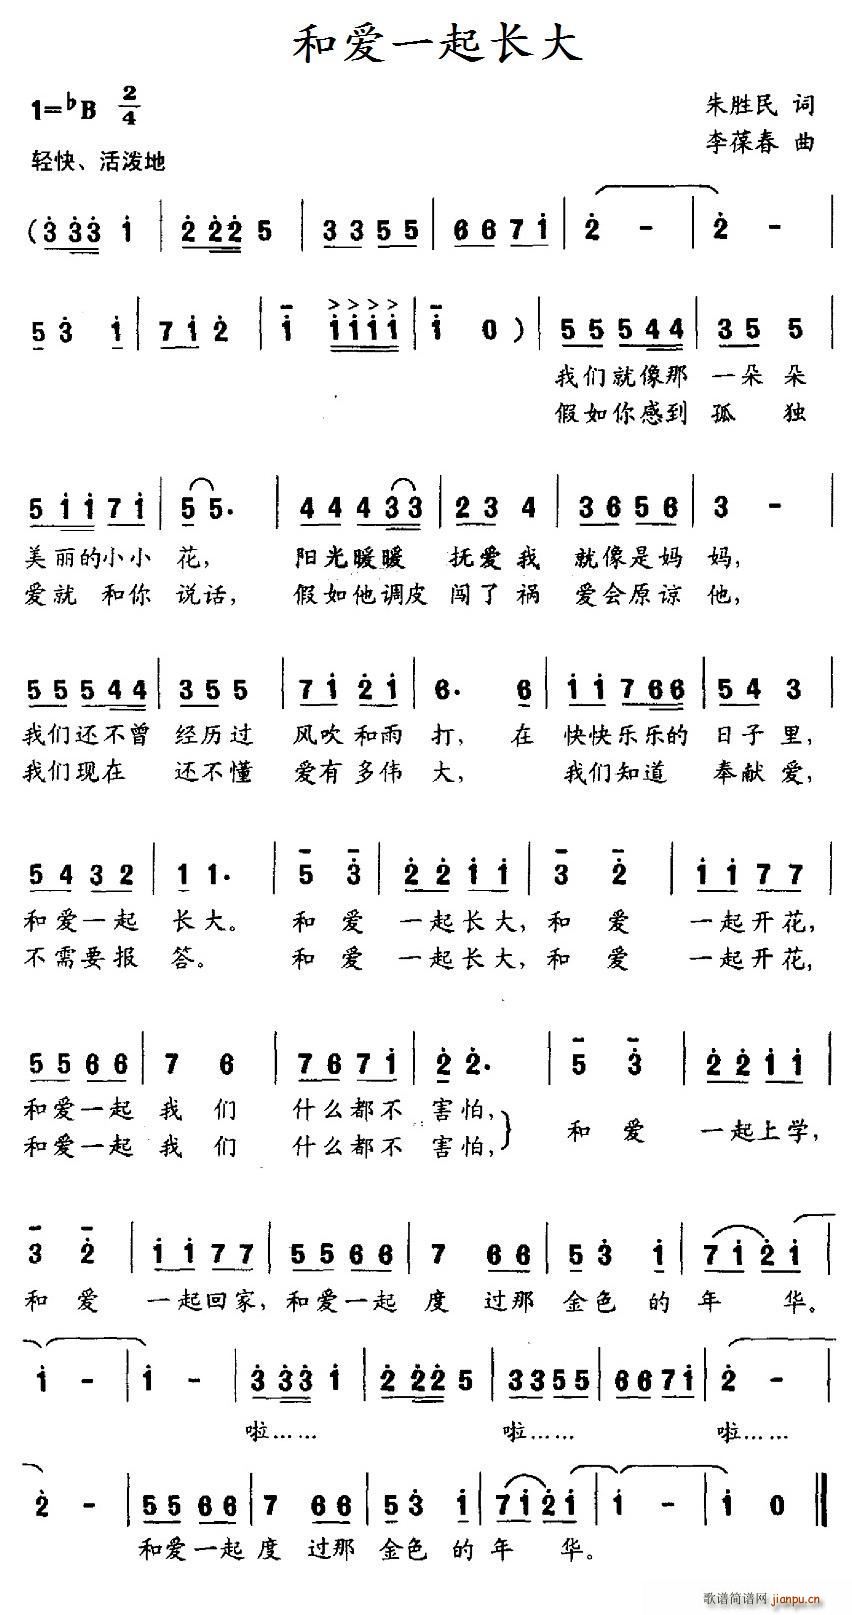 和爱一起长大
1=♭B 2/4
朱胜民 词
李葆春 曲
轻快、活泼地
( 3̇ 3̇3̇ 1̇ | 2̇ 2̇2̇ 5 | 3 3 5 5 | 6 6 7 1̇ | 2̇ - | 2̇ - |
5 3̇ 1̇ | 7 1̇ 2̇ | 1̇ 1̇1̇1̇1̇ | 1̇ 0 ) | 5 5 5 4 4 | 3 5 5 |
我们就像那 一朵朵
假如你感到 孤 独
5 1̇ 1̇ 7 1̇ | 5 5. | 4 4 4 3 3 | 2 3 4 | 3 6 5 6 | 3 - |
美丽的小小 花, 阳光暖暖 抚爱我 就像是妈 妈,
爱就 和你 说话, 假如他调皮 闯了祸 爱会原谅 他,
5 5 5 4 4 | 3 5 5 | 7 1̇ 2̇ 1̇ | 6. 6 | 1̇ 1̇ 7 6 6 | 5 4 3 |
我们还不曾 经历过 风吹和雨 打, 在 快快乐乐的 日子里,
我们现在 还不懂 爱有多伟 大, 我们知道 奉献爱,
5 4 3 2 | 1 1. | 5 3̇ | 2̇ 2̇ 1̇ 1̇ | 3 2̇ | 1̇ 1̇ 7 7 |
和爱一起 长大。 和 爱 一起长大, 和 爱 一起开花,
不需要报 答。 和 爱 一起长大, 和 爱 一起开花,
5 5 6 6 | 7 6 | 7 6 7 1̇ | 2̇ 2̇. | 5 3̇ | 2̇ 2̇ 1̇ 1̇ |
和爱一起 我 们 什么都不 害怕,
和爱一起 我 们 什么都不 害怕, } 和 爱 一起上学,
3 2̇ | 1̇ 1̇ 7 7 | 5 5 6 6 | 7 6 6 | 5 3̇ 1̇ | 7 1̇ 2̇ 1̇ |
和 爱 一起回家, 和爱一起 度 过那 金色 的 年 华。
1̇ - | 1̇ - | 3̇ 3̇3̇ 1̇ | 2̇ 2̇2̇ 5 | 3 3 5 5 | 6 6 7 1̇ | 2̇ - |
啦…… 啦…… 啦……
2̇ - | 5 5 6 6 | 7 6 6 | 5 3̇ 1̇ | 7 1̇ 2̇ 1̇ | 1̇ - | 1̇ 0 ‖
和爱一起 度 过那 金色 的 年 华。
歌谱简谱网
jianpu.cn